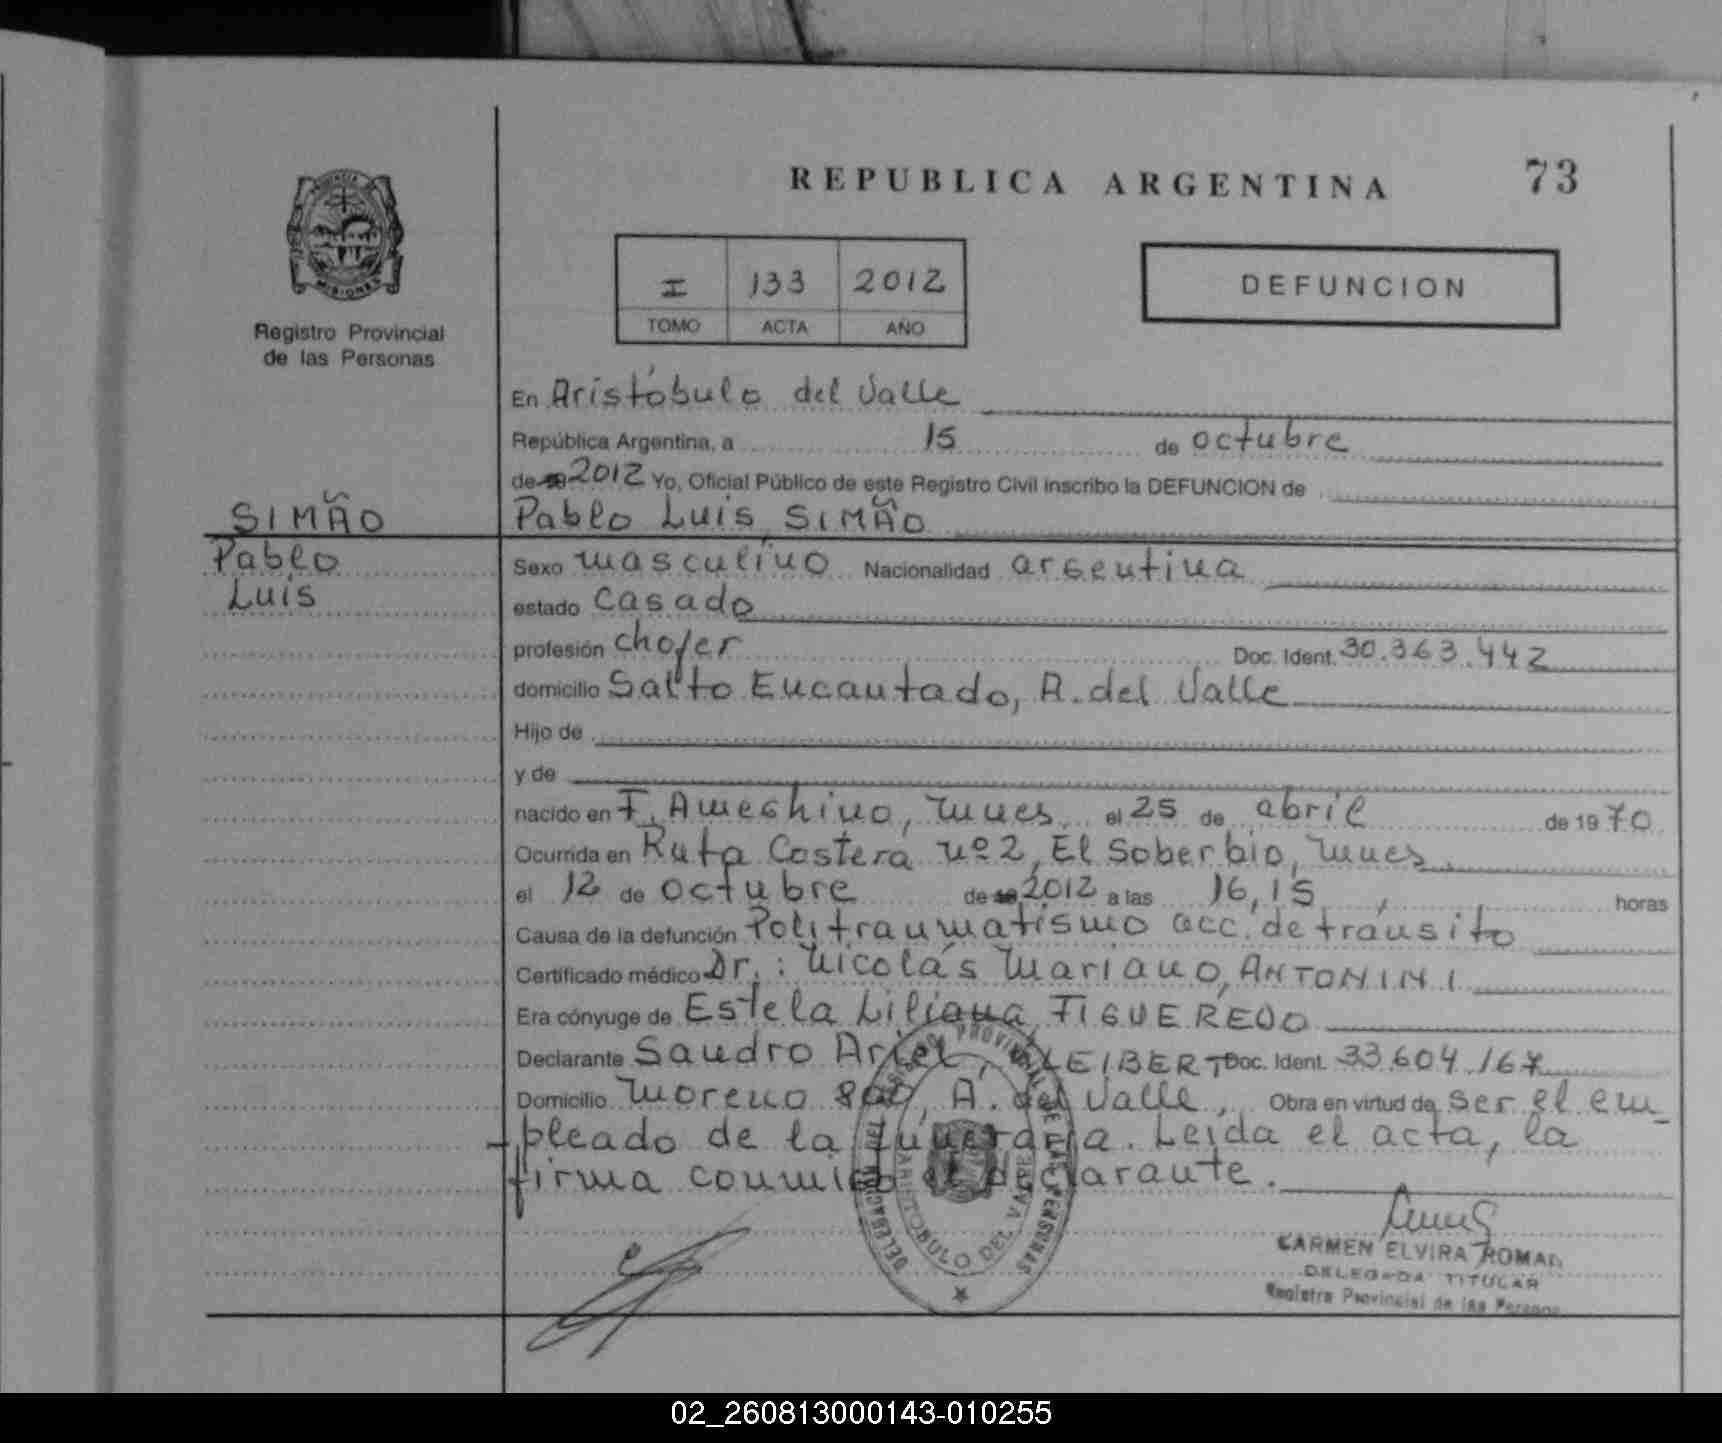 REPUBLICA ARGENTINA
73
PROVINCIA DE
MISIONES
Registro Provincial
de las Personas
I 133 2012
TOMO ACTA AÑO
DEFUNCION
En Aristóbulo del Valle
República Argentina, a 15 de octubre
de 2012 Yo, Oficial Público de este Registro Civil inscribo la DEFUNCION de
SIMÃO
Pablo Luis SIMÃO
Pablo
Luis
Sexo masculino Nacionalidad argentina
estado casado
profesión chofer Doc. Ident. 30.363.442
domicilio Salto Encantado, A. del Valle
Hijo de
y de
nacido en F. Ameghino, Mnes el 25 de abril de 1970
Ocurrida en Ruta Costera nº 2, El Soberbio, Mnes.
el 12 de octubre de 2012 a las 16,15 horas
Causa de la defunción Politraumatismo acc. de transito
Certificado médico Dr.: Nicolás Mariano, ANTONINI
Era cónyuge de Estela Liliana FIGUEREDO
Declarante Sandro Ariel, LEIBERT Doc. Ident. 33.604.167
Domicilio Moreno 800, A. del Valle, Obra en virtud de ser el em_
pleado de la funeraria. Leída el acta, la
firma conmigo el declarante.
REGISTRO PROVINCIAL DE LAS PERSONAS
DELEGACION
ARISTOBULO DEL VALLE
CARMEN ELVIRA ROMAN
DELEGADA TITULAR
Registro Provincial de las Persona
02_260813000143-010255